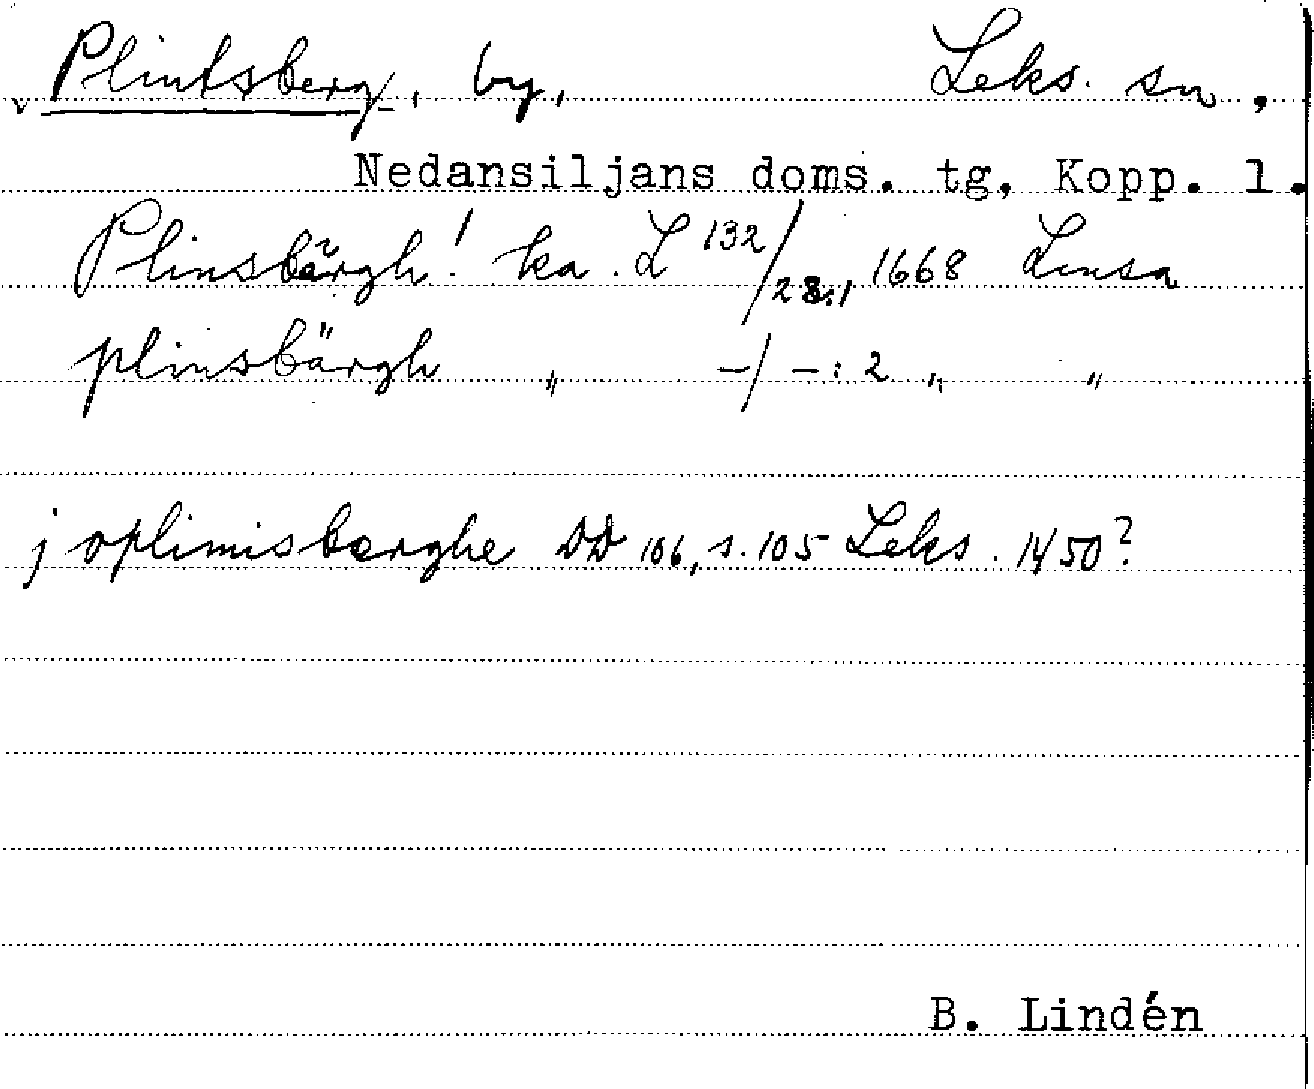 v Plintsberg, by, Leks. sn,
Nedansiljans doms. tg, Kopp. l.
Plinsbärgh! ka. L 132/28:1 1668 Lmsa
plinsbärgh " –/–:2 " "
j oplimisberghe DD 106, s. 105 Leks. 1450?
B. Lindén